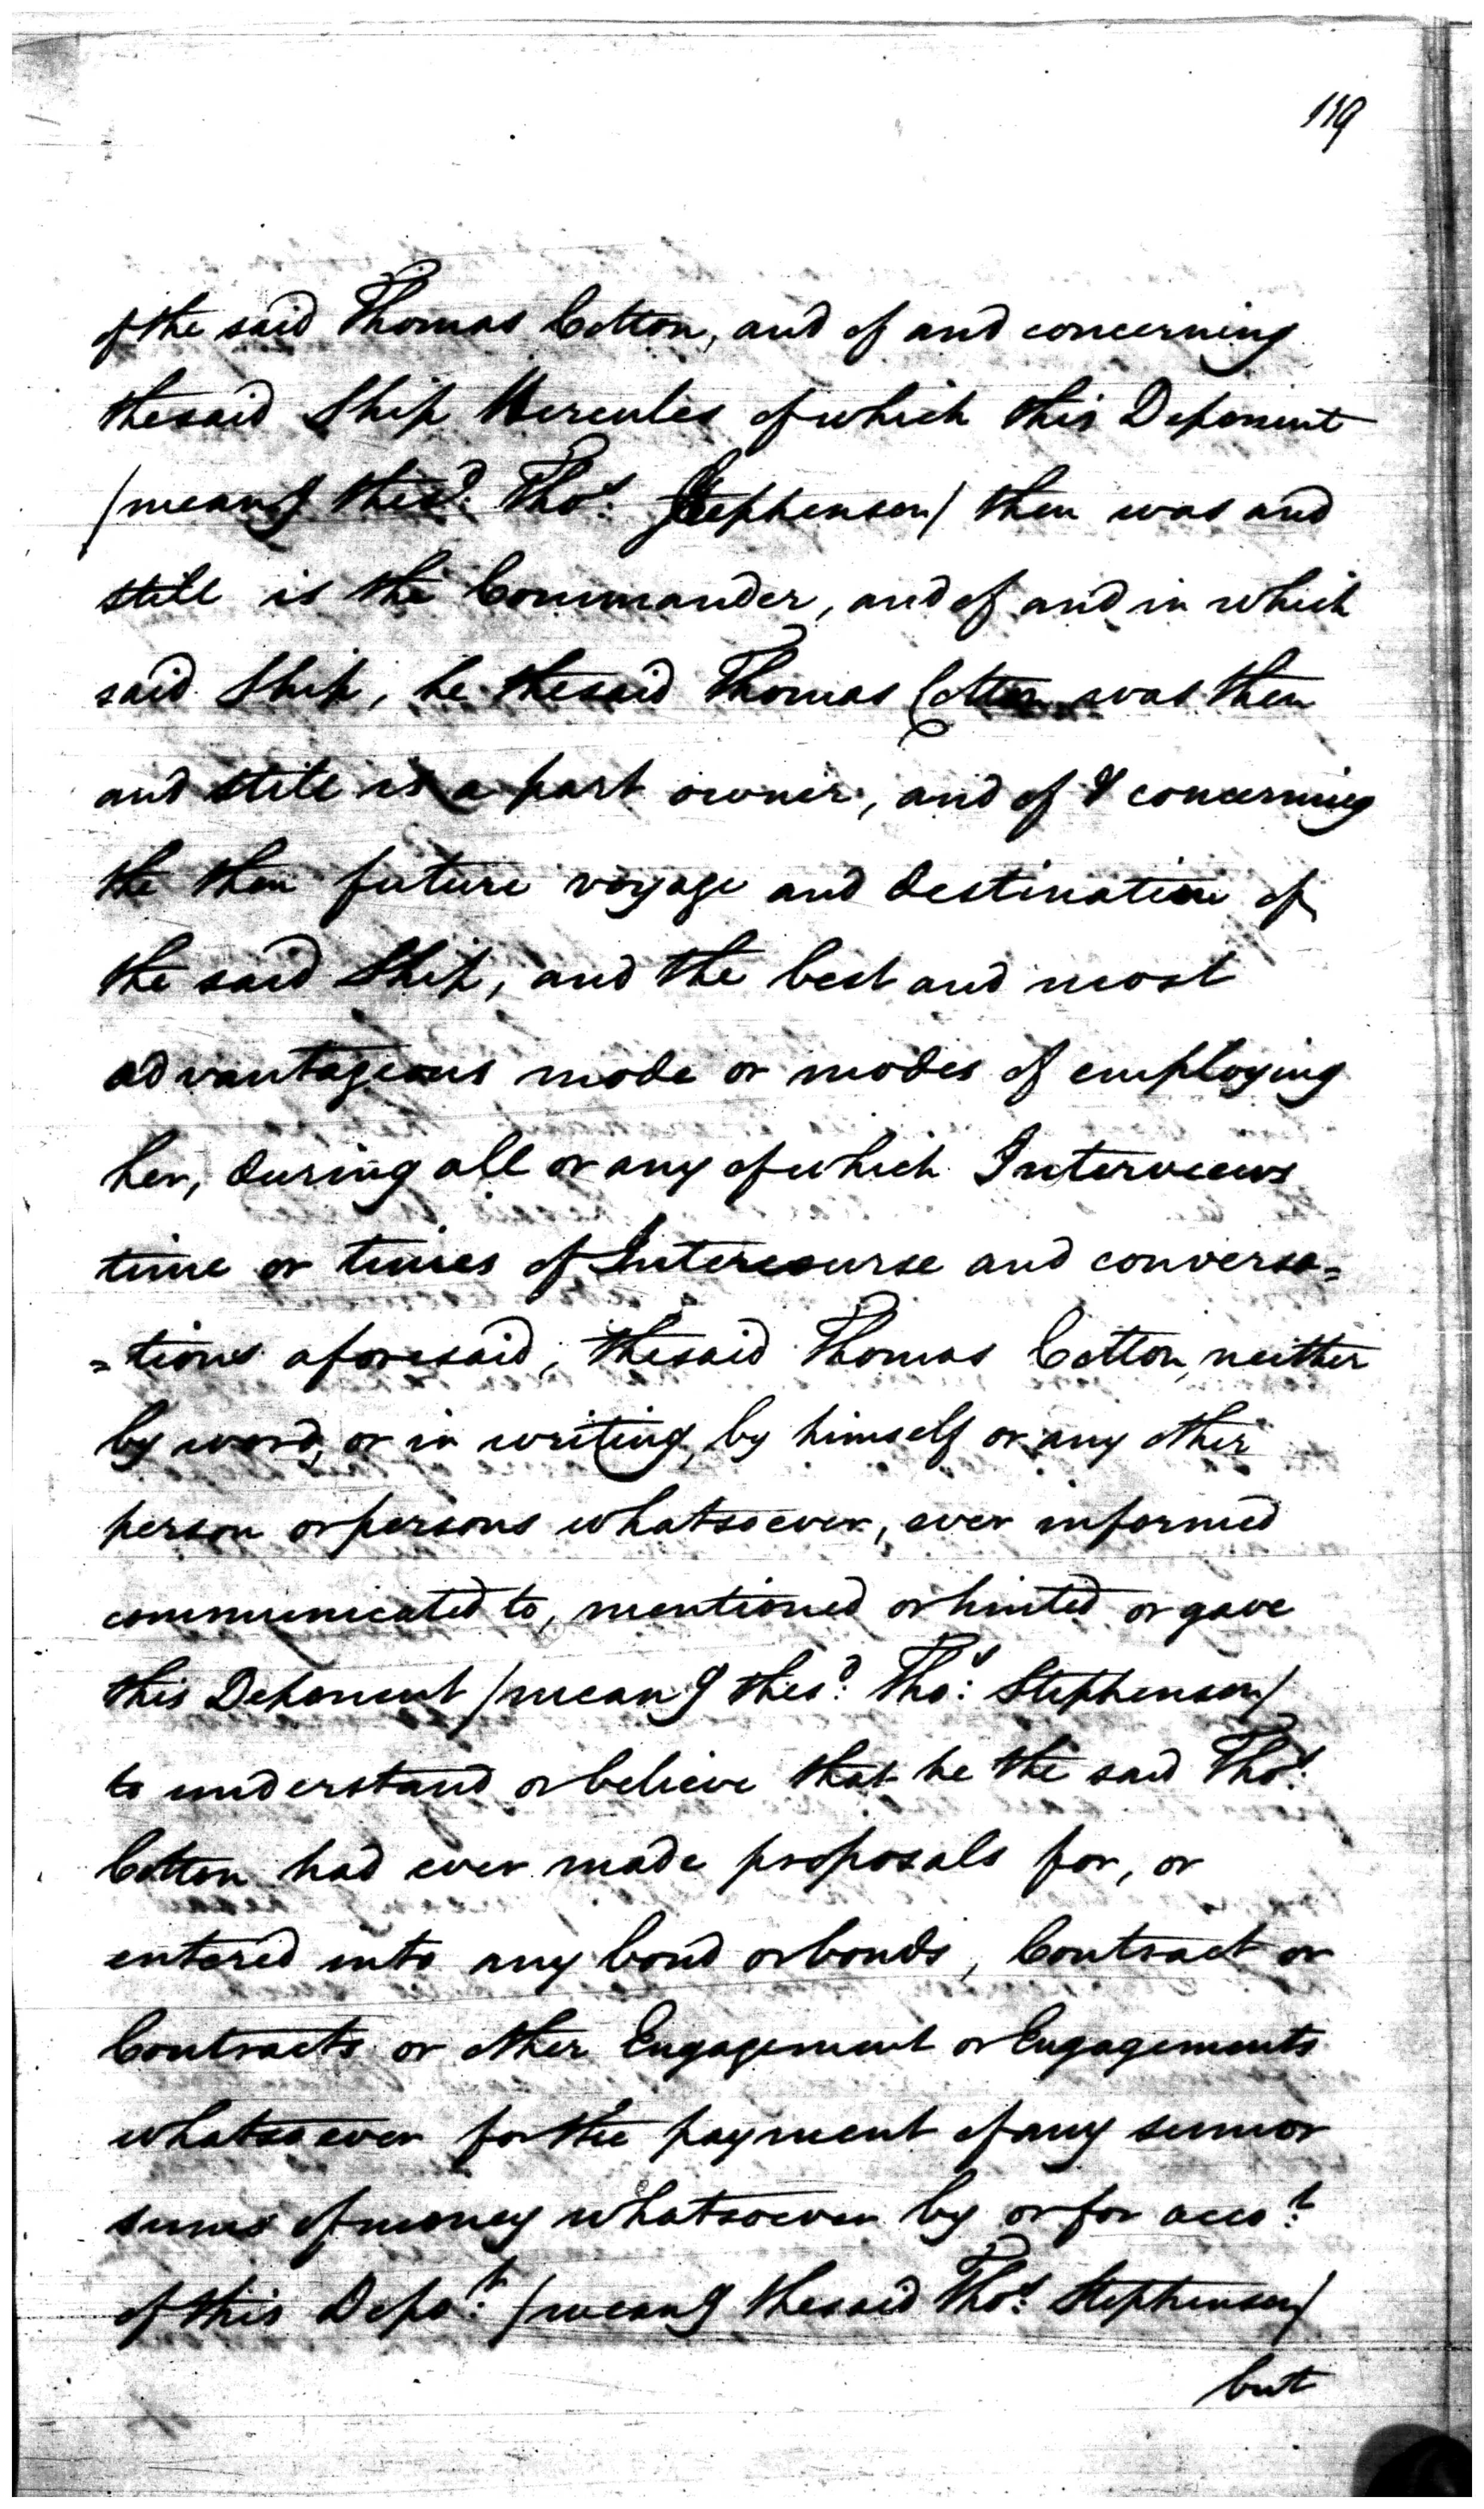 119
of the said Thomas Cotton, and of and concerning
the said Ship Hercules of which this Deponent
/meang the sd. Thos. Stephenson/ then was and
still is the Commander, and of and in which
said Ship, he the said Thomas Cotton was then
and still is a part owner, and of & concerning
the then future voyage and destination of
the said Ship, and the best and most
advantageous mode or modes of employing
her, during all or any of which Interviews
time or times of Intercourse and conversa=
=tions aforesaid, the said Thomas Cotton, neither
by word, or in writing, by himself or any other
person or persons whatsoever, ever informed
communicated to, mentioned or hinted or gave
this Deponent /meang the sd. Thos. Stephenson/
to understand or believe that he the said Thos.
Cotton had ever made proposals for, or
entered into any bond or bonds, Contract or
Contracts or other Engagement or Engagements
whatsoever for the payment of any sum or
sums of money whatsoever by or for acco.t
of this Depo.t /meang the said Thos. Stephenson/
but